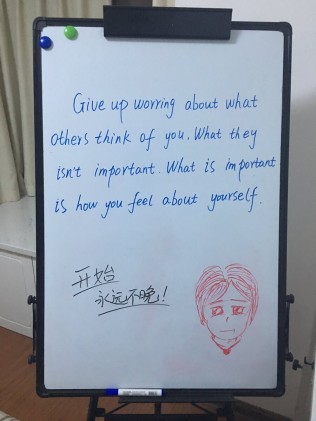 Give up worring about what
others think of you. What they
isn't important. What is important
is how you feel about yourself.
开始
永远不晚!